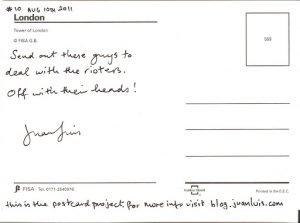 #10 AUG 10TH 2011
London
Tower of London
© FISA G.B.
569
Send out these guys to
deal with the rioters.
Off with their heads!
Juan Luis
FISA - Tel. 0171-2540976
Printed in the E.E.C.
this is the postcard project for more info visit blog.juanluis.com